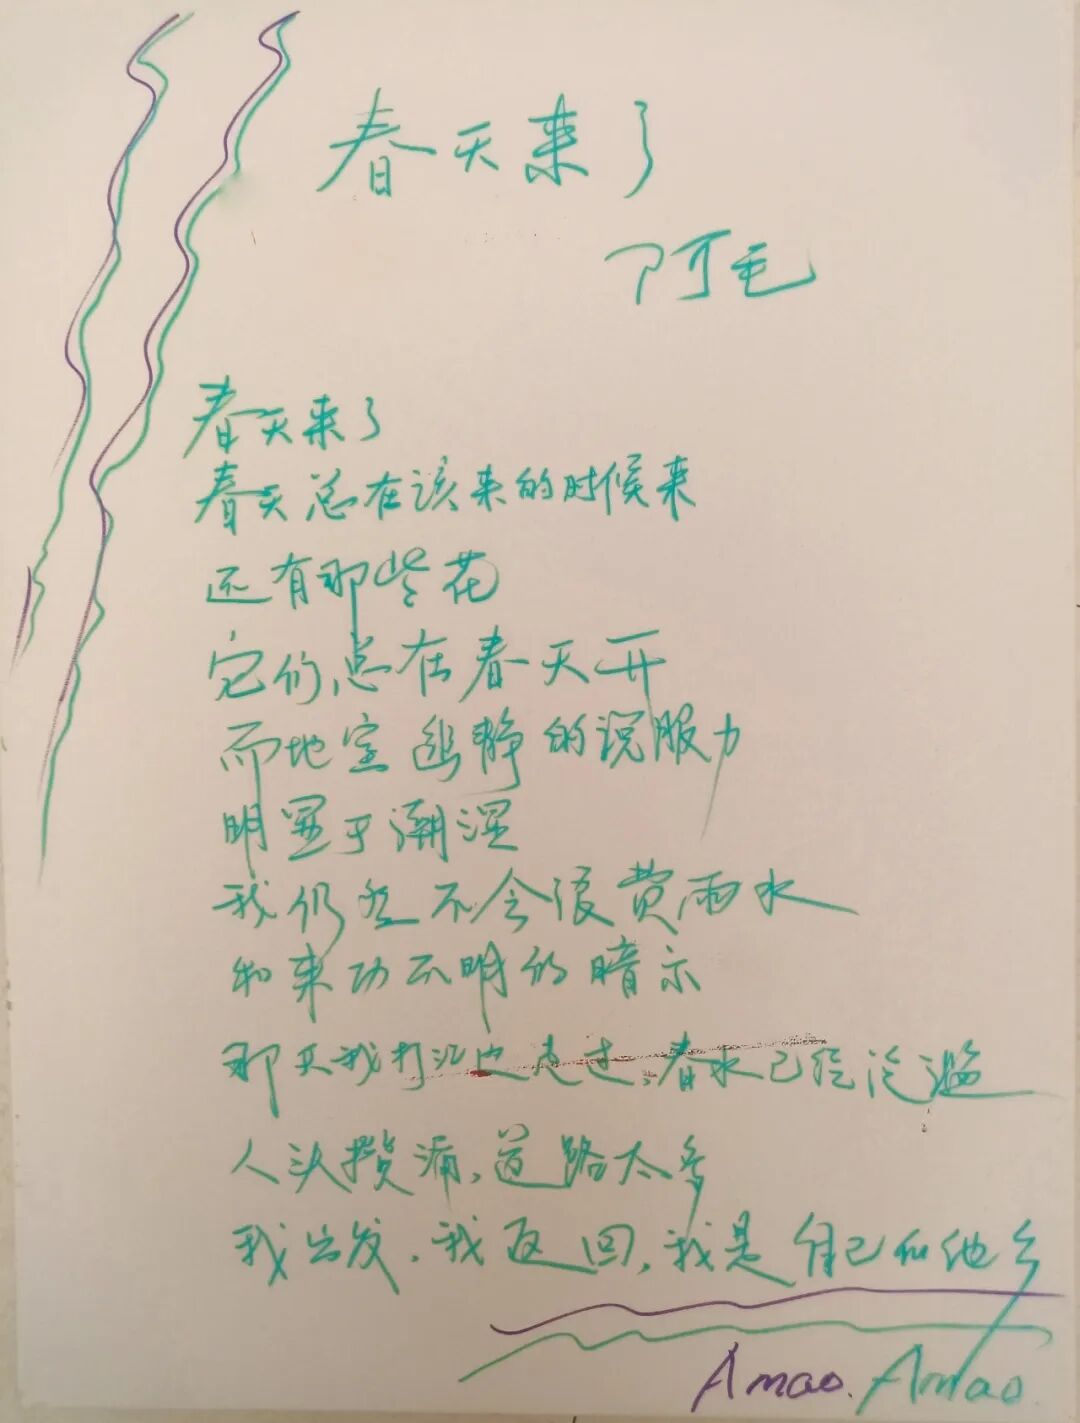 春天来了
阿毛
春天来了
春天总在该来的时候来
还有那些花
它们总在春天开
而地室幽静的说服力
明显于潮湿
我仍然不会浪费雨水
和来功不明的暗示
那天我打江边走过，春水已经泛滥
人头攒涌，道路太多
我出发，我返回，我是自己的他乡
Amao. Amao